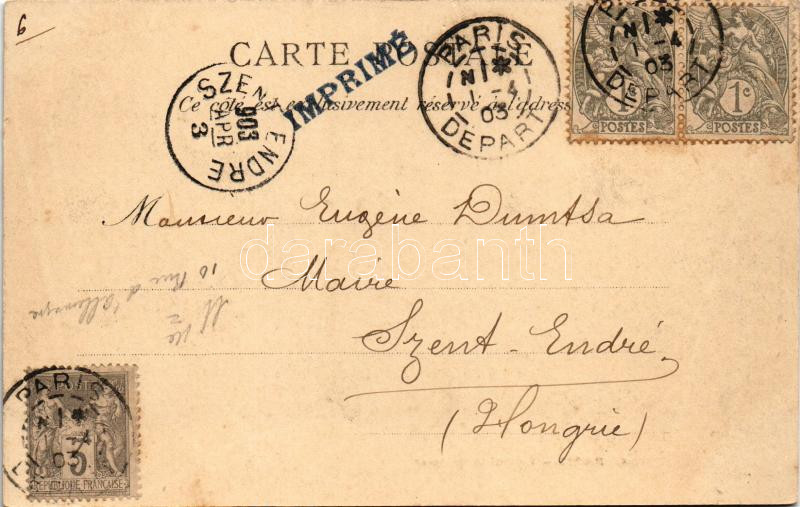 6
CARTE POSTALE
IMPRIMÉ
Ce côté est exclusivement réservé à l'adresse
SZENT ENDRE
903
APR
3
PARIS
1 - 4
03
DÉPART
PARIS
1 - 4
03
DÉPART
1c
POSTES
POSTES
Monsieur Eugène Dumtsa
Maire
Szent-Endré
(Hongrie)
darabanth
10 Rue d'Allemagne
PARIS
4
03
RÉPUBLIQUE FRANÇAISE